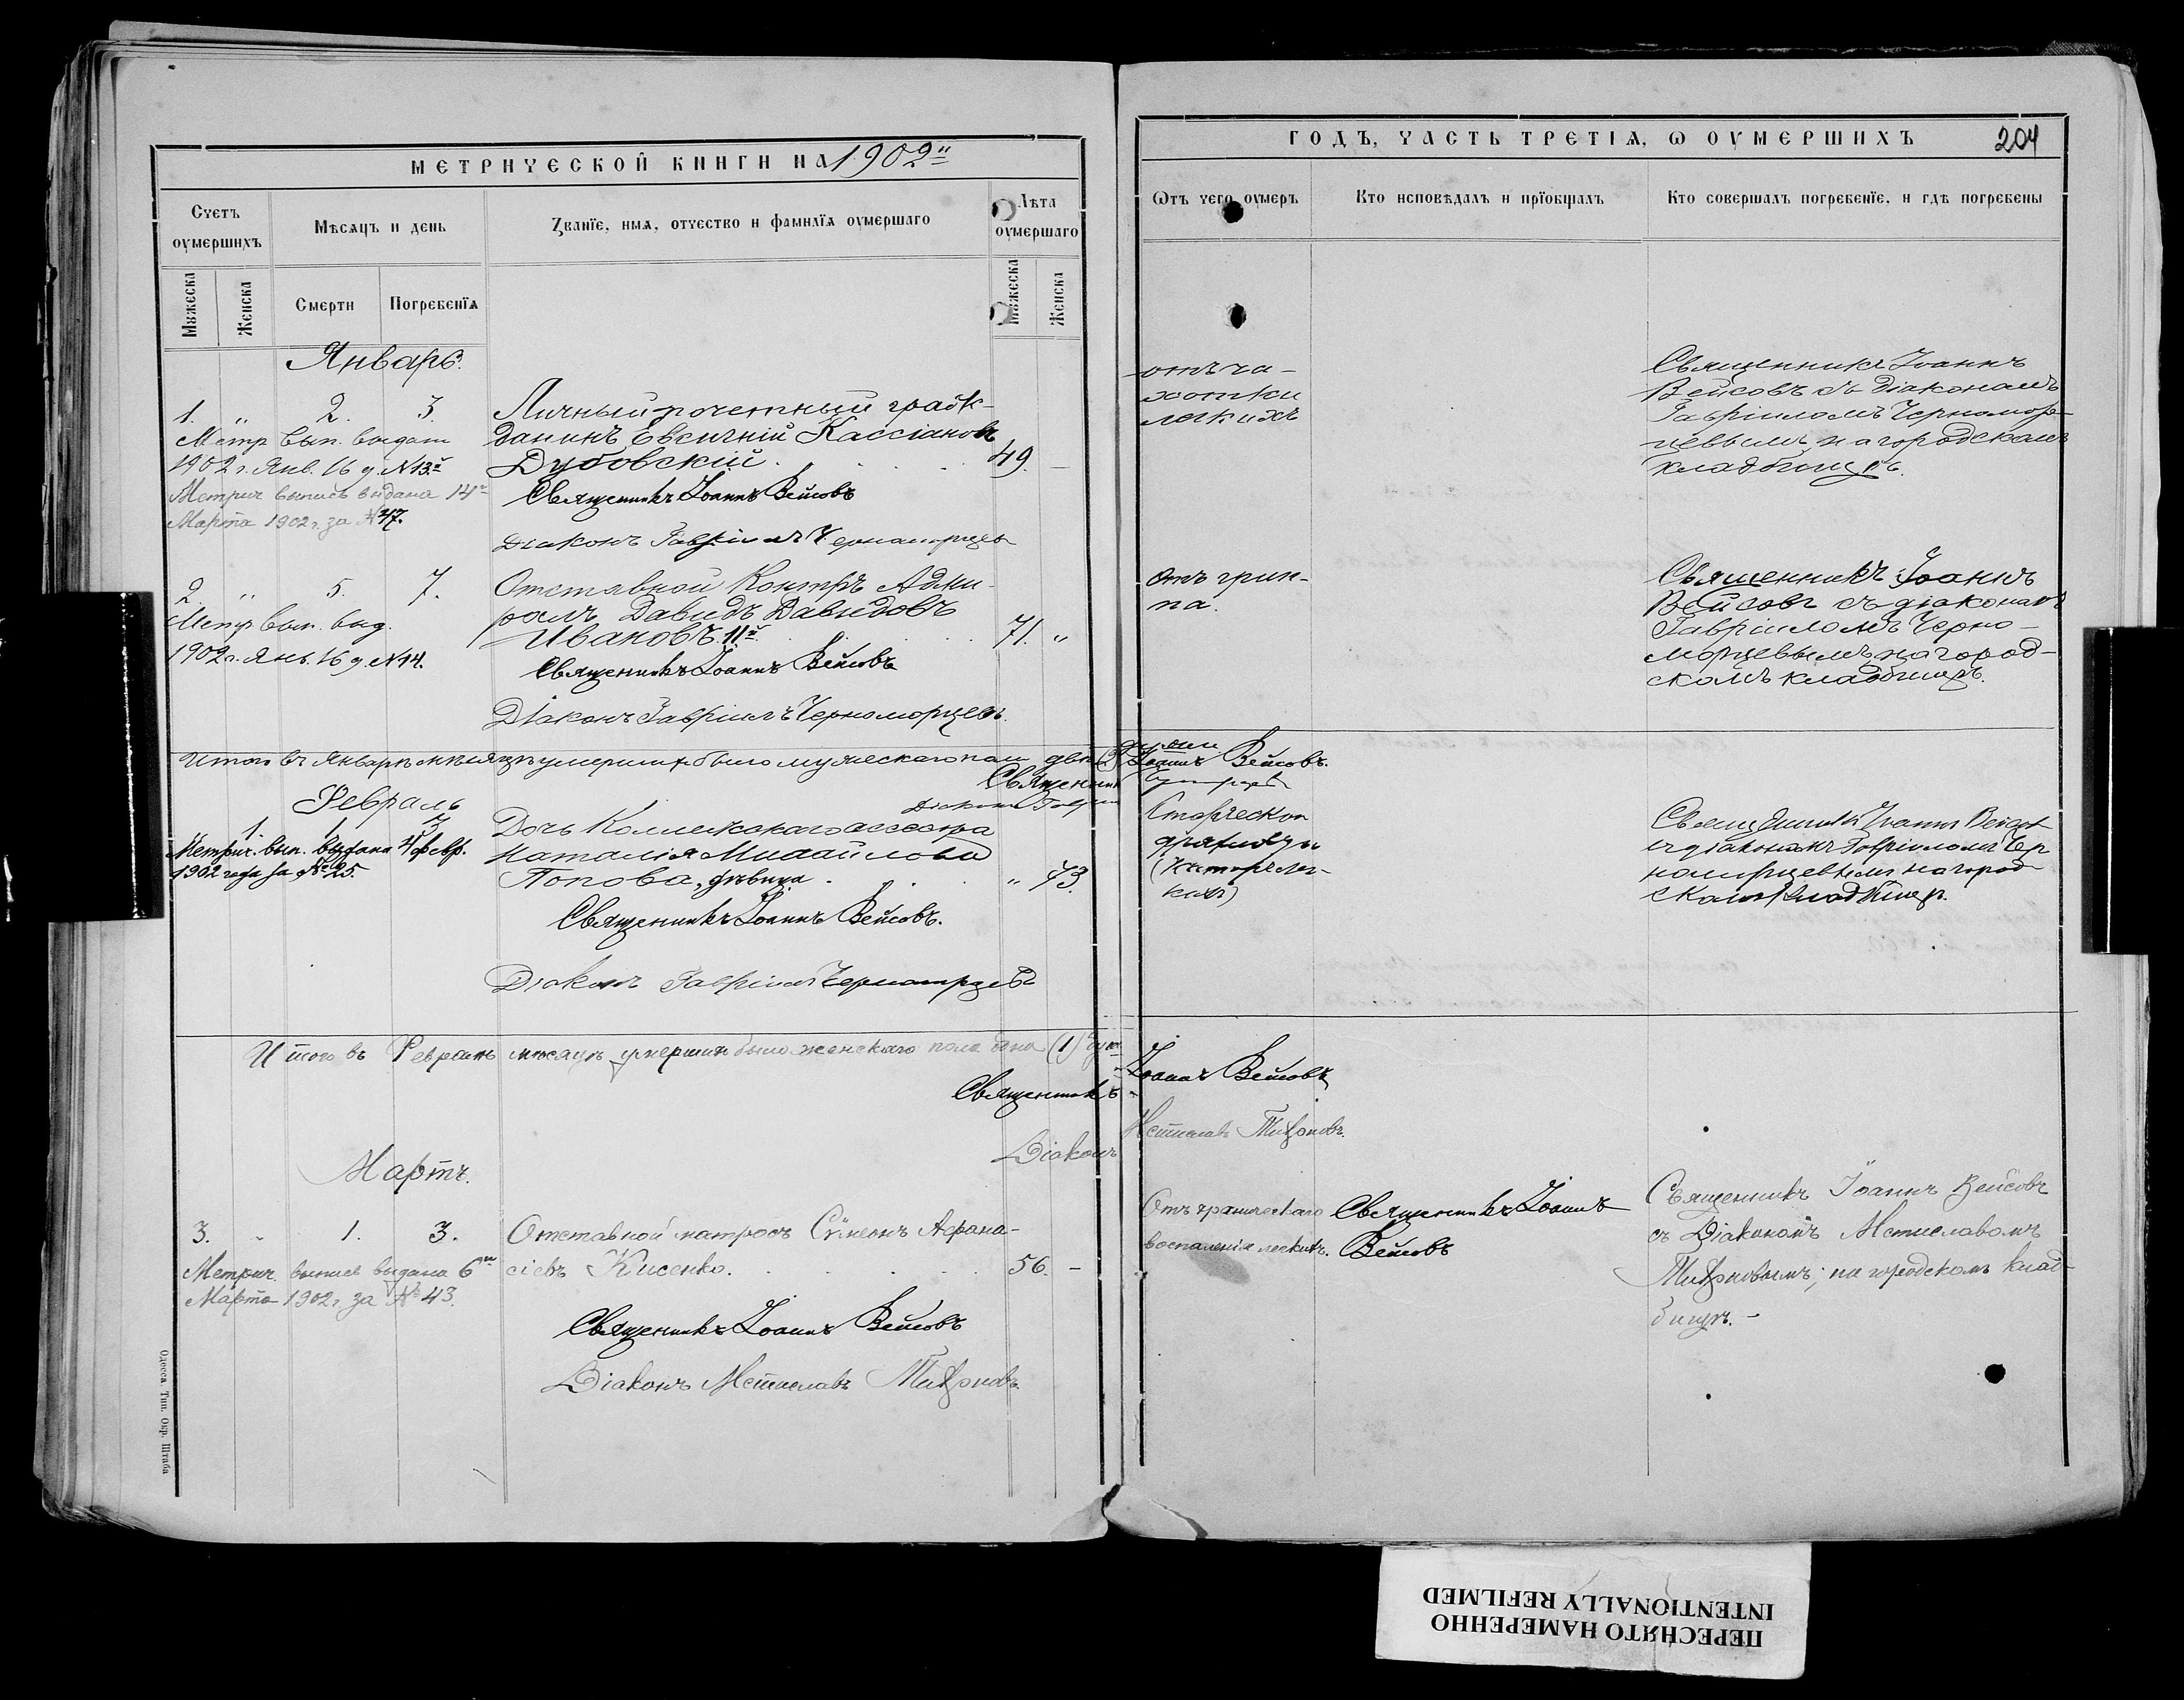 МЕТРИЧЕСКОЙ КНИГИ НА 1902й
Счетъ оумершихъ
Мѣсяцъ и день
Званїе, имя, отчество и фамилїя оумершаго
Лѣта оумершаго
Мужеска
Женска
Смерти
Погребенїя
Мужеска
Женска
Январь.
1. „ 2. 3. Личный почетный граж-
Метр. вып. выдана данинъ Евгеній Кассіановъ
1902 г. Янв. 16 д. №13й Дубовскій. 49. –
Метрич выпись выдана 14го Священникъ Іоаннъ Вейсовъ
Марта 1902 г. за №47.
Діаконъ Гавріилъ Черноморцевъ
2. „ 5. 7. Отставной Контръ Адми-
Метр. вып. выд. ралъ Давидъ Давидовъ
Ивановъ 11й 71. „
1902 г. Янв. 16 д. №14. Священникъ Іоаннъ Вейсовъ
Діаконъ Гавріилъ Черноморцевъ.
Итого въ Январѣ мѣсяцѣ умершихъ было мужескаго пола два (2)
Священник
Діаконъ Гавріи
Февраль
1. 1 3 Дочь Коллежскаго ассесора
Метрич. вып. выдана 4 февр. Наталія Михайлова
1902 года за №25. Попова, дѣвица. „ 73.
Священникъ Іоаннъ Вейсовъ.
Діаконъ Гавріилъ Черноморцевъ
Итого въ Февралѣ мѣсяцѣ умершихъ было женскаго пола одна (1) душа
Священникъ
Діаконъ
Мартъ.
3. „ 1. 3. Отставной матросъ Сѵмеонъ Афана-
Метрич. выпись выдана 6го сіевъ Кисенко. 56. –
Марта 1902 г. за №43.
Священникъ Іоаннъ Вейсовъ
Діаконъ Мстиславъ Тихоновъ.
Одесса Тип. Окр. Штаба
ГОДЪ, ЧАСТЬ ТРЕТІЯ, Ѡ ОУМЕРШИХЪ 204
Ѿтъ чего оумеръ
Кто исповѣдалъ и прїобщалъ
Кто совершалъ погребенїе, и гдѣ погребены
отъ ча-
хотки
легкихъ
Священникъ Іоаннъ
Вейсовъ съ діакономъ
Гавріиломъ Черномор-
цевымъ, на городскомъ
кладбищѣ.
Отъ грип-
па.
Священникъ Іоаннъ
Вейсовъ съ діакономъ
Гавріиломъ Черно-
морцевымъ, на город-
скомъ кладбищѣ.
души.
Іоаннъ Вейсовъ.
Старческой
(
Священникъ Іоаннъ Вейсовъ
съ діакономъ Гавріиломъ Чер
номорцевымъ на город-
скомъ кладбищѣ.
Іоаннъ Вейсовъ
Мстиславъ Тихоновъ.
Отъ хроническаго
воспаленія легкихъ.
Священникъ Іоаннъ
Вейсовъ
Священникъ Іоаннъ Вейсовъ
съ Діакономъ Мстиславомъ
Тихоновымъ; на городскомъ клад-
бищѣ. –
ПЕРЕСНЯТО НАМЕРЕННО
INTENTIONALLY REFILMED